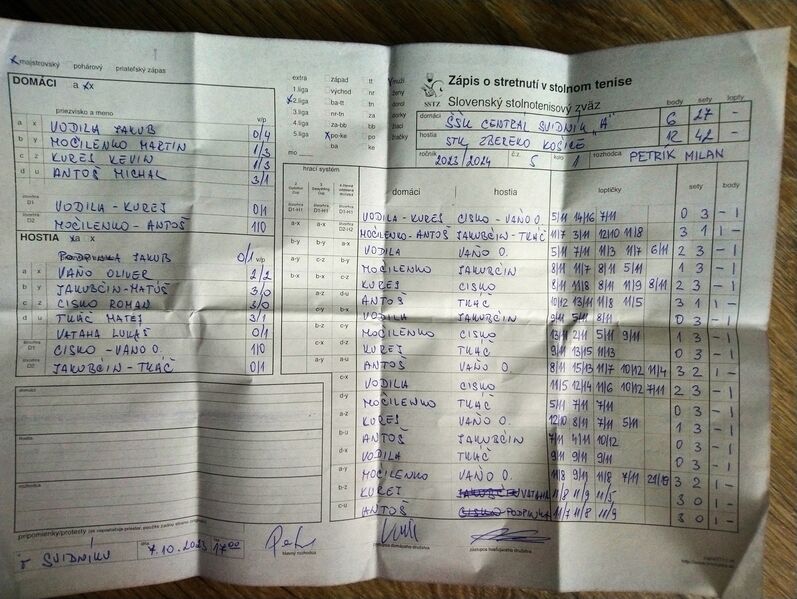 x majstrovský pohárový priateľský zápas
DOMÁCI a x x
priezvisko a meno v/p
a x VODILA JAKUB 0/4
b y MOČILENKO MARTIN 1/3
c z KUREJ KEVIN 1/3
d u ANTOŠ MICHAL 3/1
štvorhra D1 VODILA - KUREJ 0/1
štvorhra D2 MOČILENKO - ANTOŠ 1/0
HOSTIA a x
PODPINKA JAKUB 0/1 v/p
a x VAŇO OLIVER 2/2
b y JAKUBČIN - MATÚŠ 3/0
c z CISKO ROMAN 3/0
d u TKÁČ MATEJ 3/1
VATAHA LUKÁŠ 0/1
štvorhra D1 CISKO - VAŇO O. 1/0
štvorhra D2 JAKUBČIN - TKÁČ 0/1
domáci
hostia
rozhodca
pripomienky/protesty
v SVIDNÍKU
dňa 7.10.2023 17:00
hlavný rozhodca
zástupca domáceho družstva
zástupca hosťujúceho družstva
extra západ tt
1.liga východ nr
x 2.liga ba-tt tn
3.liga nr-tn za
4.liga za-bb bb
5.liga x po-ke po
mo ba ke
muži
ženy
dorci
dorky
žiaci
žiačky
SSTZ
Zápis o stretnutí v stolnom tenise
Slovenský stolnotenisový zväz
body sety lopty
domáci ŠŠK CENTRAL SVIDNÍK "A" 6 27 -
hostia STK ZBEREKO KOŠICE 12 42 -
ročník 2023/2024 č.z. 5 kolo 1 rozhodca PETRÍK MILAN
hrací systém
domáci hostia loptičky sety body
VODILA - KUREJ CISKO - VAŇO O. 5/11 14/16 7/11 0 3 - 1
MOČILENKO - ANTOŠ JAKUBČIN - TKÁČ 11/7 3/11 12/10 11/8 3 1 1 -
a-x VODILA VAŇO O. 5/11 7/11 11/3 11/7 6/11 2 3 - 1
b-y MOČILENKO JAKUBČIN 8/11 11/7 8/11 5/11 1 3 - 1
c-z KUREJ CISKO 8/11 11/8 8/11 11/9 8/11 2 3 - 1
d-u ANTOŠ TKÁČ 10/12 13/11 11/8 11/5 3 1 1 -
a-y VODILA JAKUBČIN 9/11 5/11 8/11 0 3 - 1
b-z MOČILENKO CISKO 13/11 2/11 5/11 9/11 1 3 - 1
c-u KUREJ TKÁČ 9/11 13/15 11/13 0 3 - 1
ANTOŠ VAŇO O. 8/11 15/13 11/7 10/12 11/4 3 2 1 -
VODILA CISKO 11/5 12/14 11/6 10/12 7/11 2 3 - 1
MOČILENKO TKÁČ 5/11 7/11 7/11 0 3 - 1
KUREJ VAŇO O. 12/10 8/11 7/11 5/11 1 3 - 1
ANTOŠ JAKUBČIN 7/11 4/11 10/12 0 3 - 1
VODILA TKÁČ 9/11 9/11 9/11 0 3 - 1
MOČILENKO VAŇO O. 11/8 9/11 11/8 7/11 21/19 3 2 1 -
KUREJ VATAHA 11/8 11/9 11/5 3 0 1 -
ANTOŠ PODPINKA 11/7 11/8 11/9 3 0 1 -